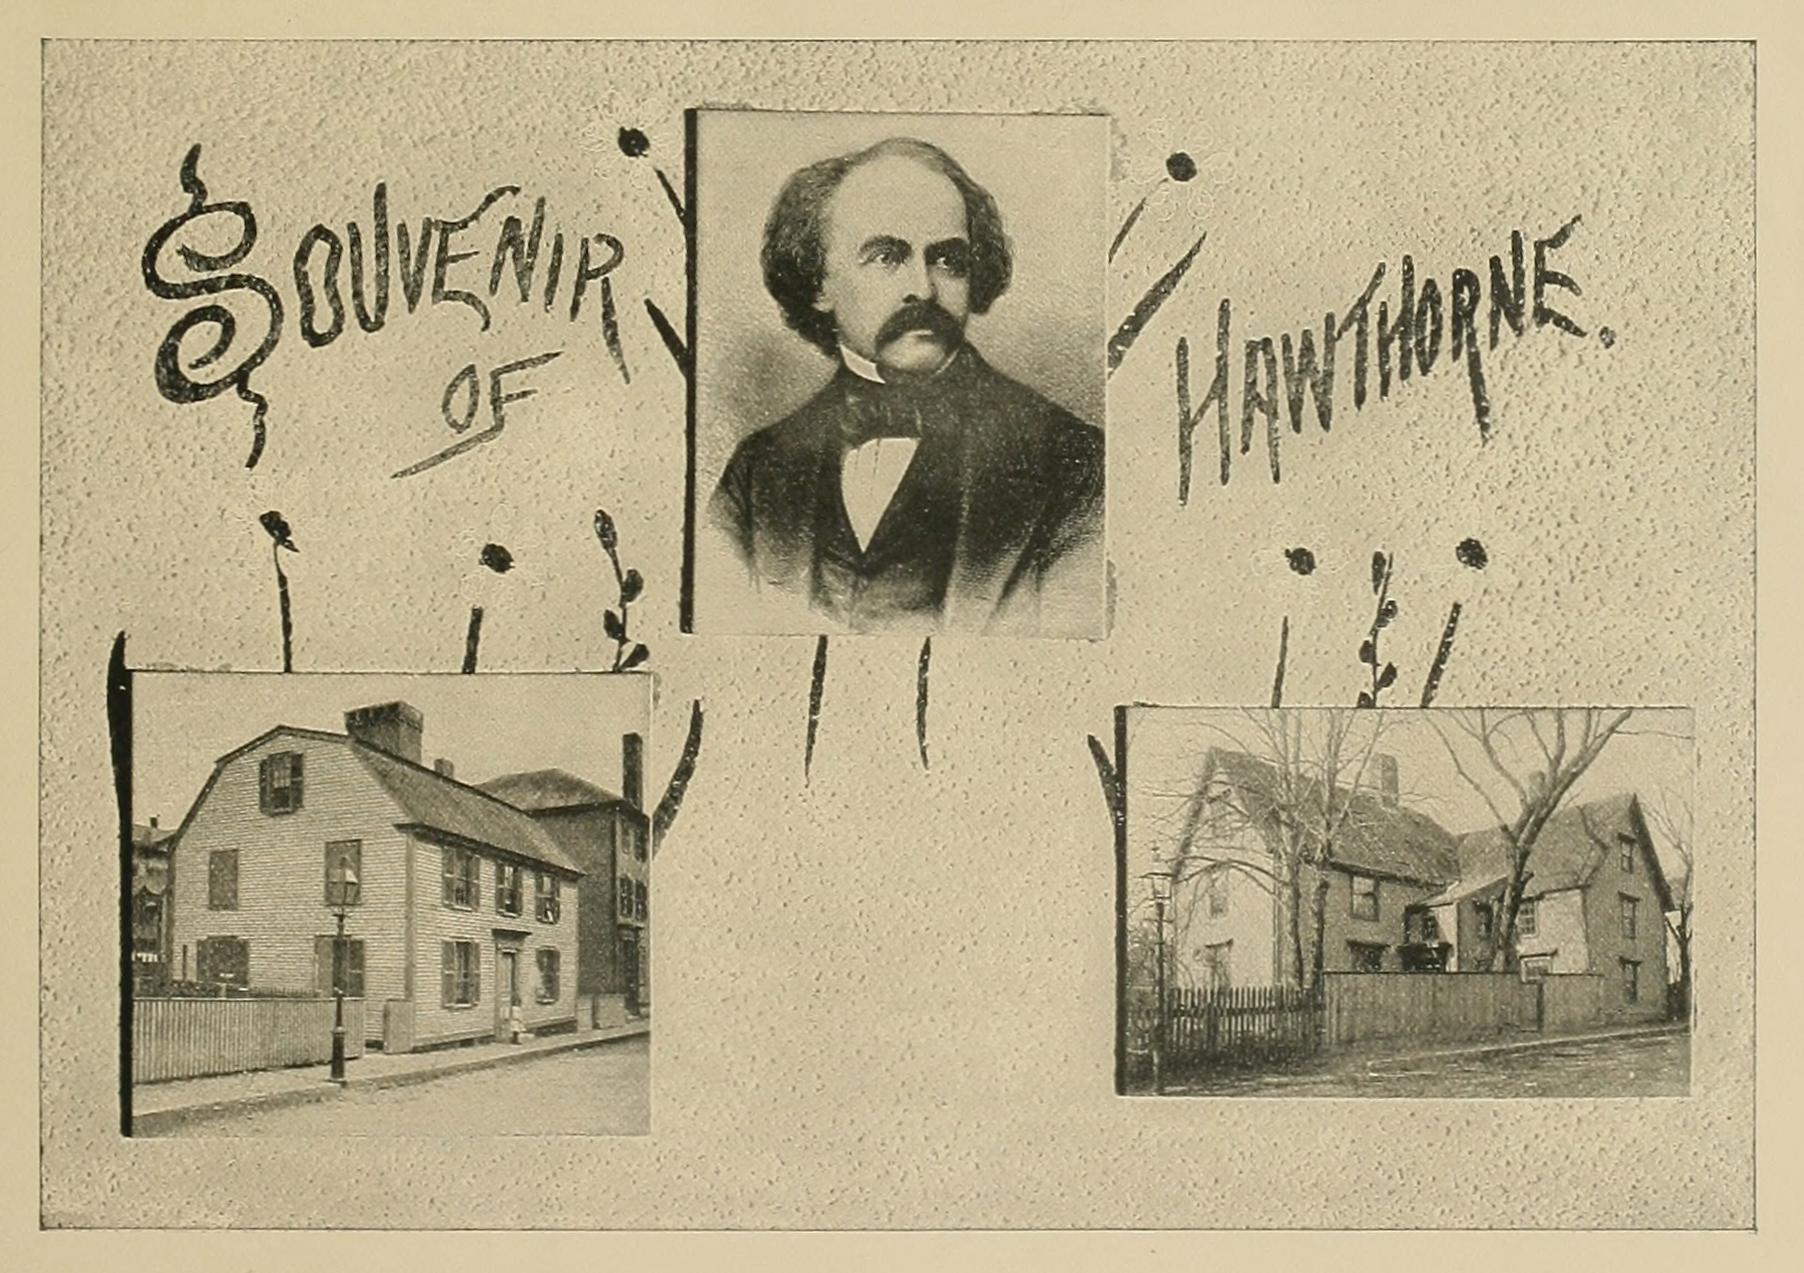 SOUVENIR
OF
HAWTHORNE.